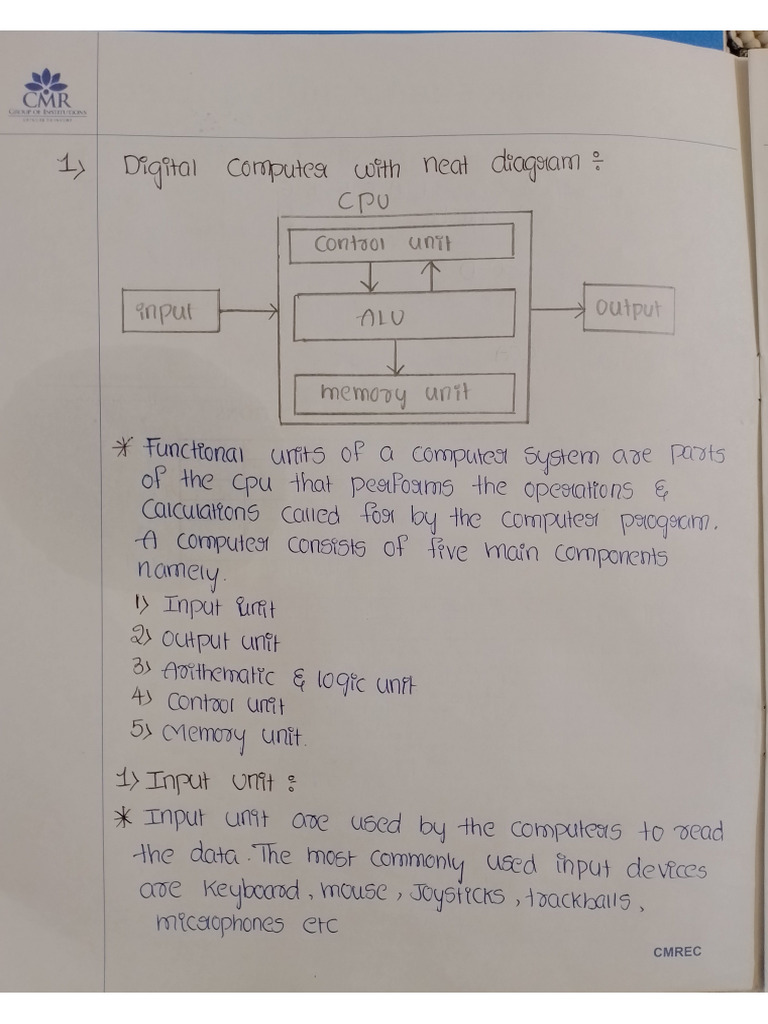 CMR
GROUP OF INSTITUTIONS
1) Digital computer with neat diagram :
CPU
control unit
input
ALU
output
memory unit
* Functional units of a computer system are parts
of the cpu that performs the operations &
calculations called for by the computer program.
A computer consists of five main components
namely.
1) Input unit
2) Output unit
3) Arithematic & logic unit
4) Control unit
5) Memory unit.
1) Input unit :
* Input unit are used by the computers to read
the data. The most commonly used input devices
are keyboard, mouse, Joysticks, trackballs,
microphones etc
CMREC